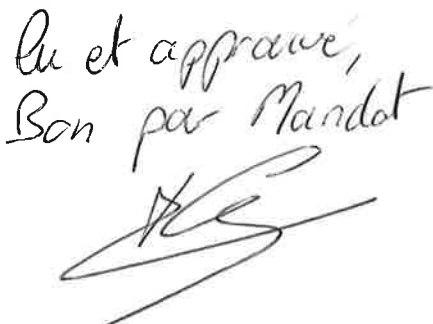 Lu et approuvé,
Bon pour Mandat